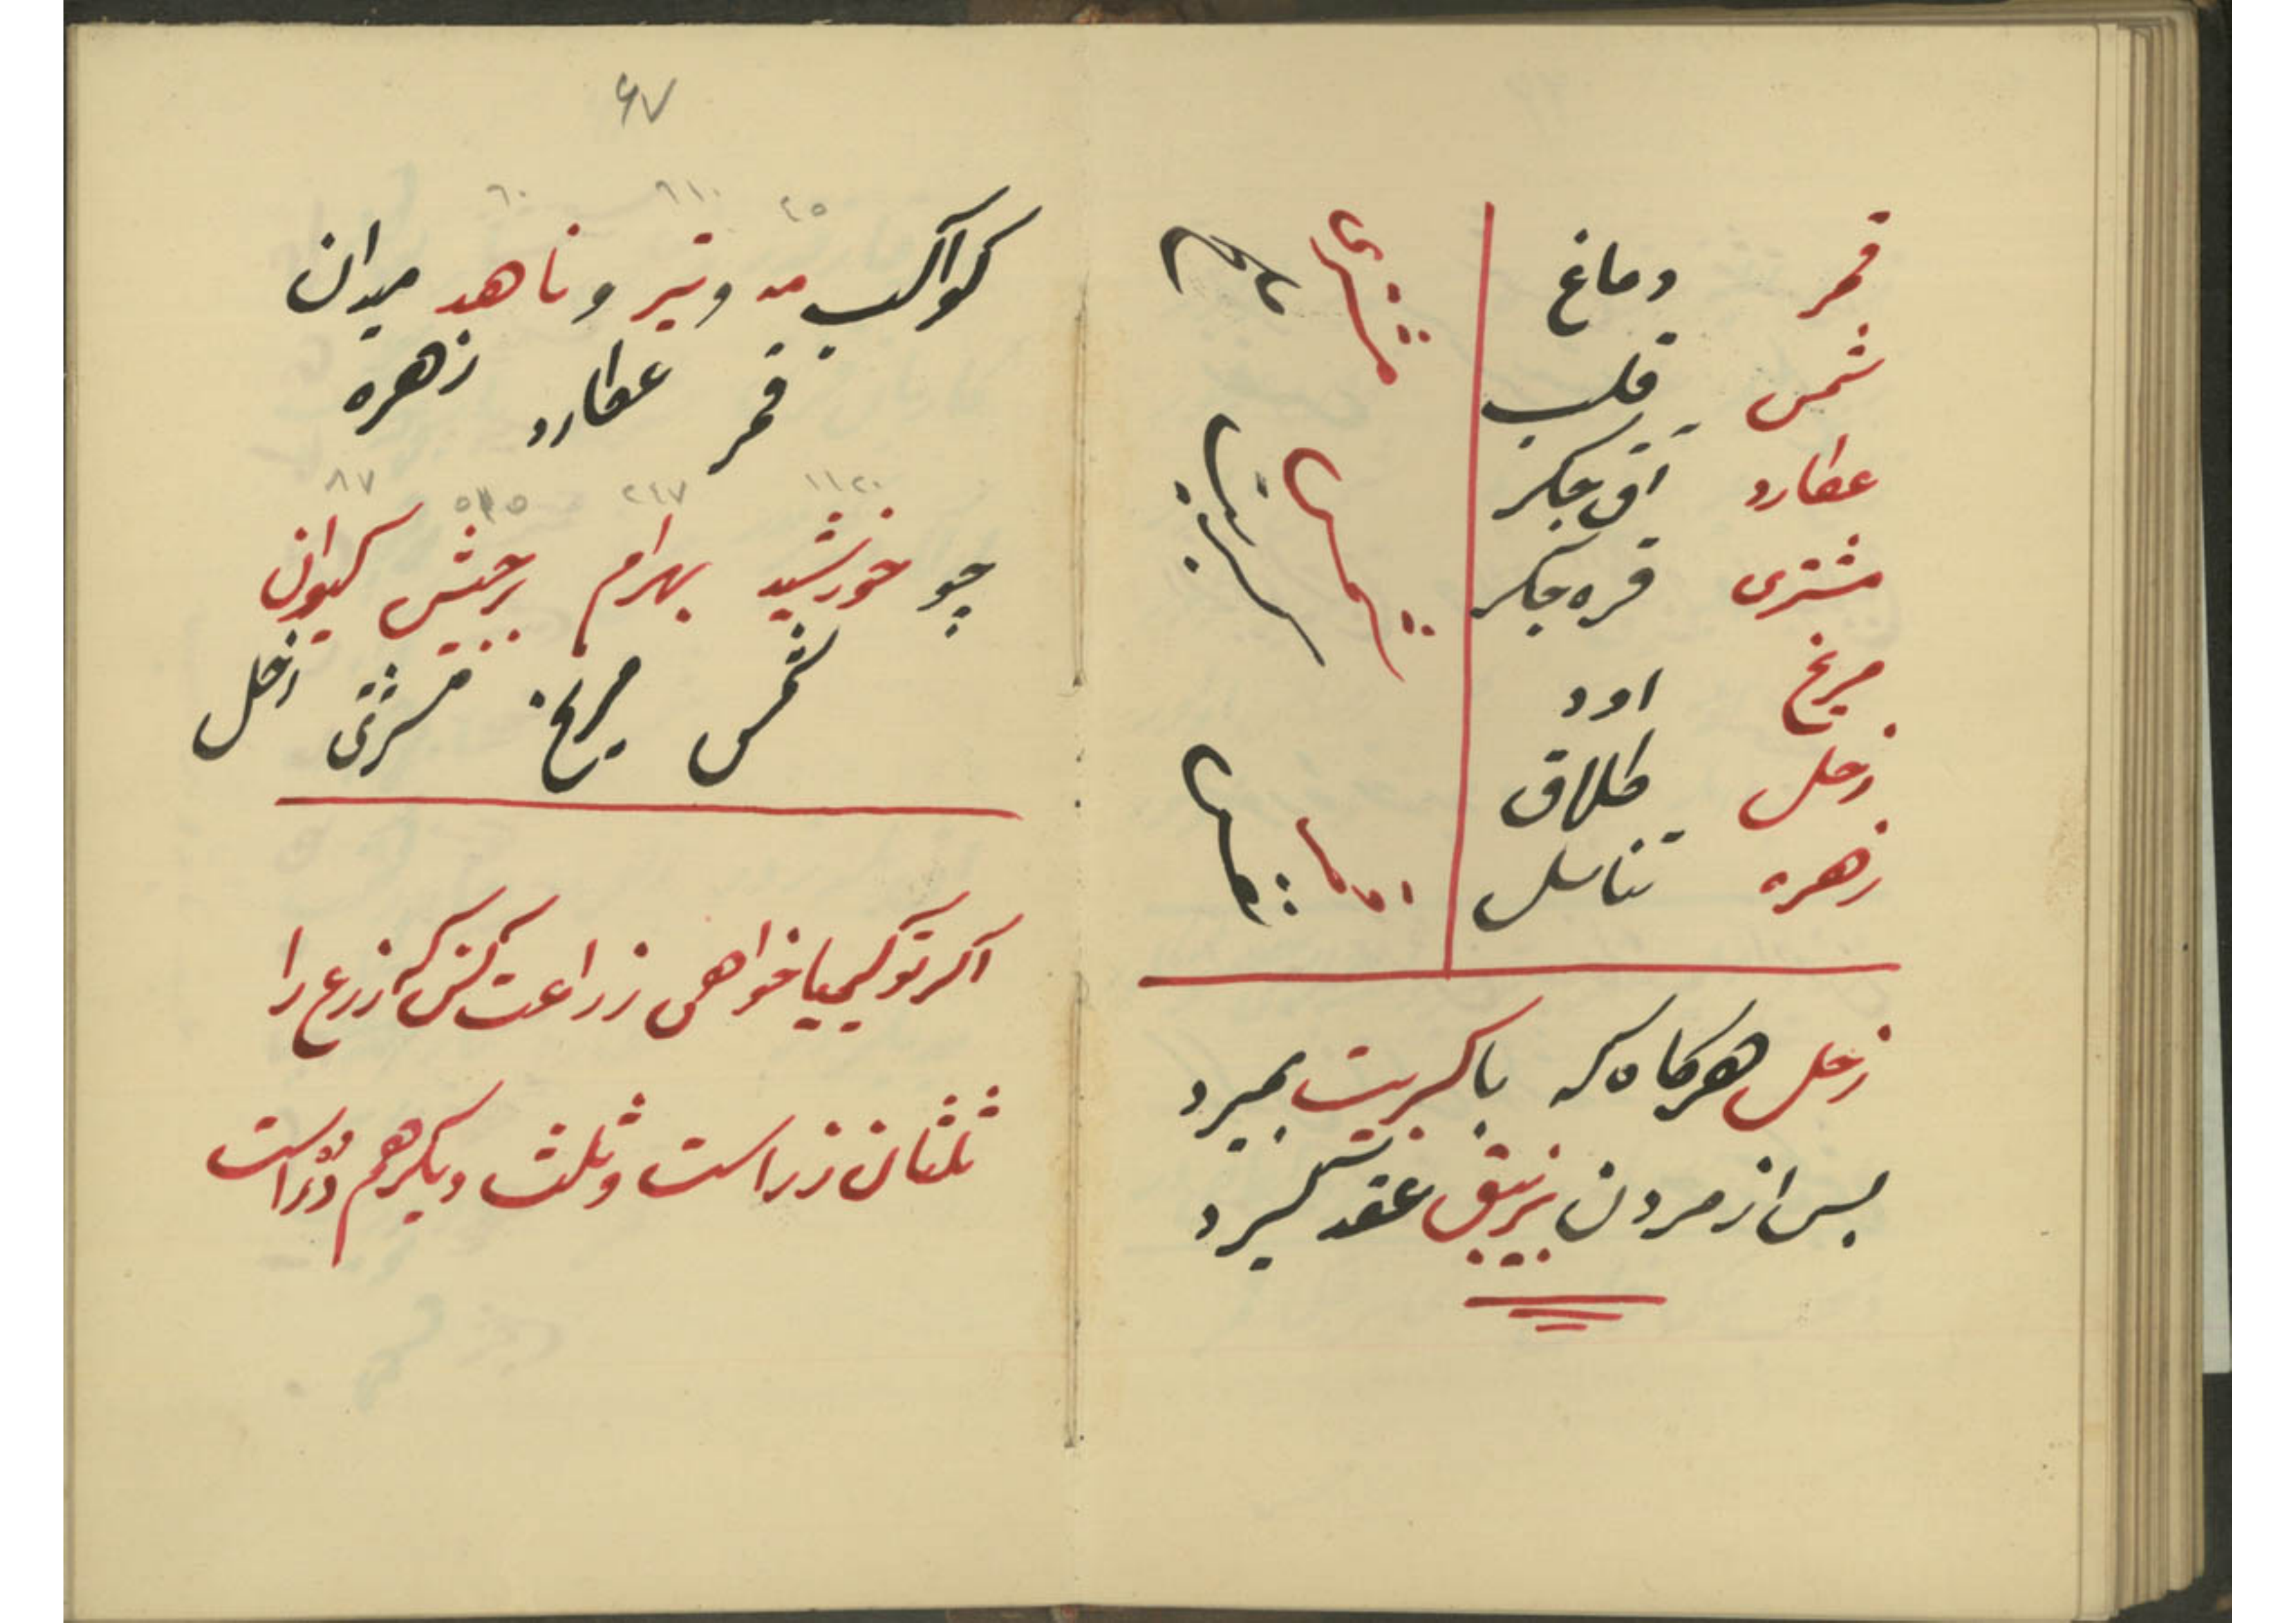 قمر دماغ
شمس قلب
عطارد آق جکر
مشتری قره جکر
مریخ اود
زحل طلاق
زهره تناسل
مشتری
زحل هرکاه که با کبریت بمیرد
پس از مردن بزیبق عقد کیرد
۶۷
٤٥ ٦١٠ ٦٠
کواکب مه و تیر و ناهد میدان
قمر عطارد زهره
١١٢٠ ٢٤٧ ٨٧
چو خورشید بهرام برجیش کیوان
شمس مریخ مشتری زحل
اکر تو کیمیا خواهی زراعت کن که زرع را
ثلثان زر است و ثلث دیکر هم در است